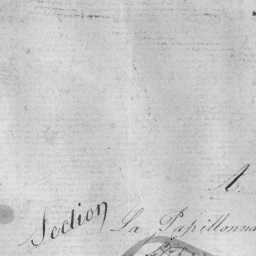 A.
Section La Papillonna